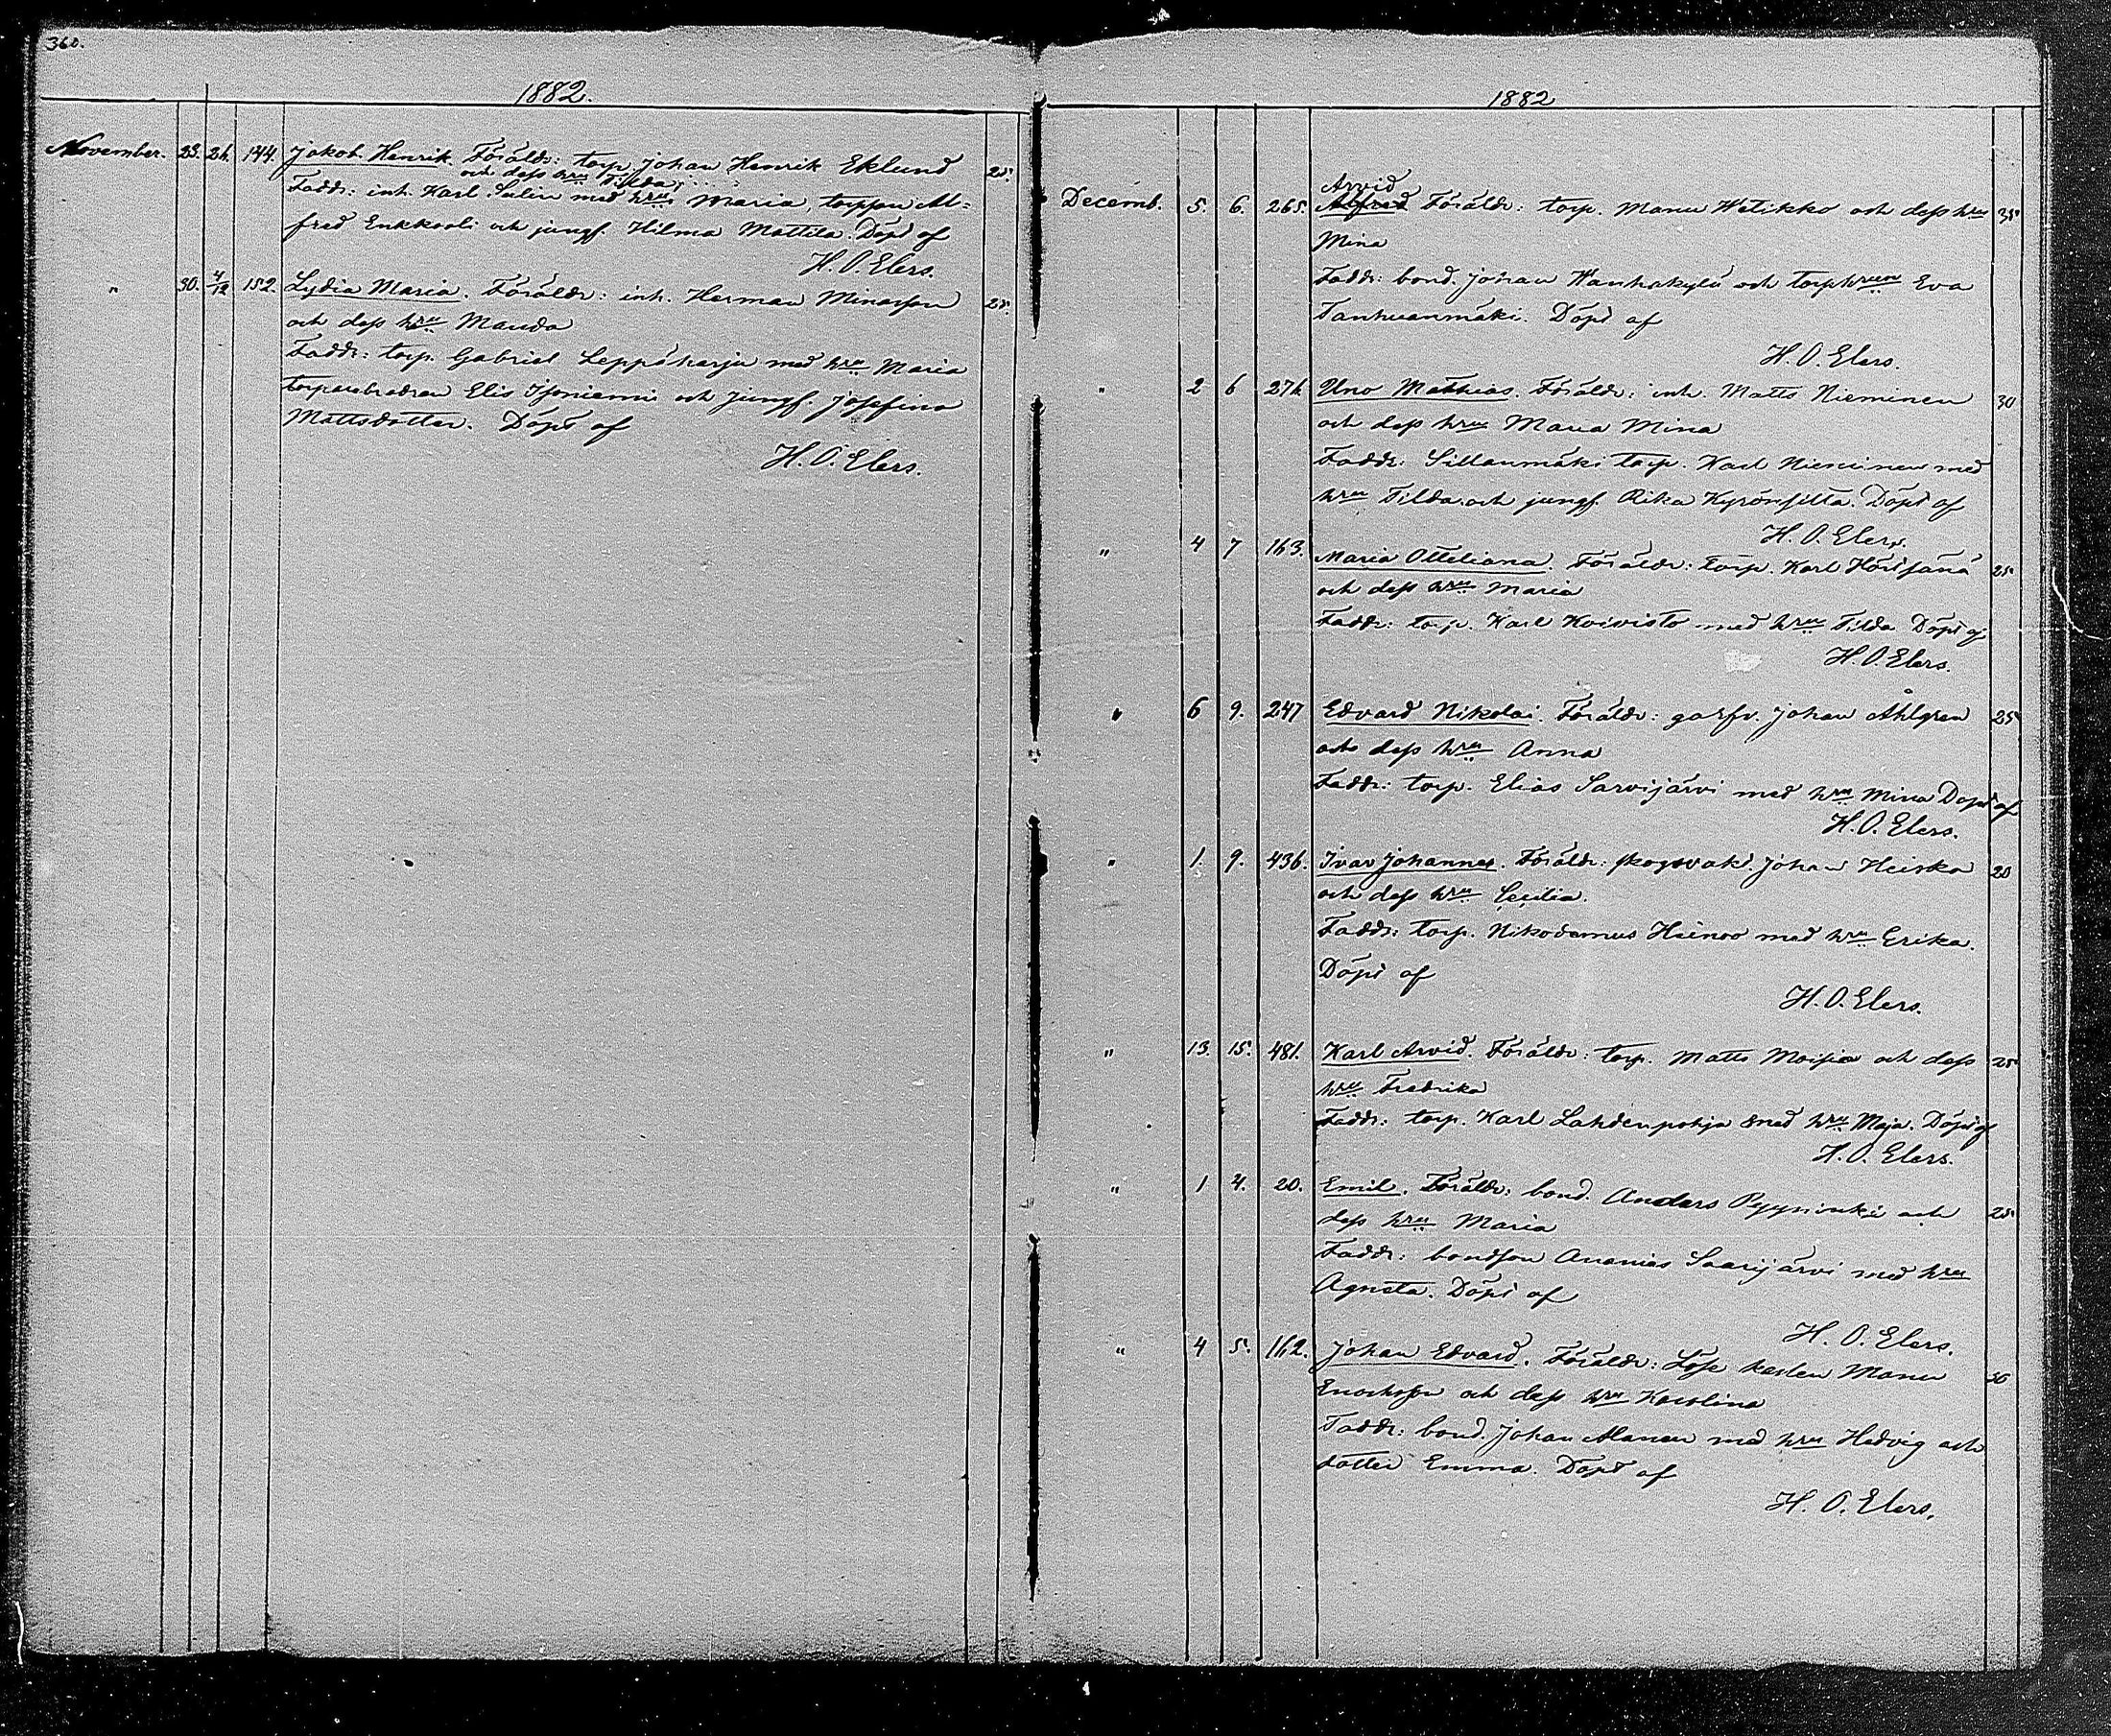 360.
1882.
November. 23. 26. 144. Jakob Henrik. Föräldr: torp. Johan Henrik Eklund 25.
och dess hru Tilda
Faddr: inh. Karl Salin med hru Maria, torppen Al-
fred Enkkooli och jungf. Hilma Mattila. Döpt af
H. O. Elers.
" 30. 4/12 152. Lydia Maria. Föräldr: inh. Herman Minasson 25.
och dess hru Manda
Faddr: torp. Gabriel Leppäharju med hru Maria
Elis Isoniemi och Jungf. Josefina
Mattsdotter. Döpt af
H. O. Elers.
1882
Arvid
Decemb. 5. 6. 265. Alfred Föräldr: torp. Manu Wetikko och dess hru 35
Mina
Faddr: bond. Johan Wanhakylä och torphrun Eva
Tanhuanmäki. Döpt af
H. O. Elers.
" 2 6 276 Uno Mathias. Föräldr: inh. Matts Nieminen 30
och dess hru Maria Mina
Faddr: Sillanmäki torp. Karl Nieminen med
hru Tilda och jungf. Rika Kyrönsilta. Döpt af
H. O. Elers.
" 4 7 163. Maria Otteliana. Föräldr: torp. Karl 25
och dess hru Maria
Faddr: torp. Karl Koivisto med hru Tilda Döpt af
H. O. Elers.
" 6 9. 247 Edvard Nikolai. Föräldr: garfv. Johan Åhlgren 25
och dess hru Anna
Faddr: torp. Elias Sarvijärvi med hru Mina Döpt af
H. O. Elers.
" 1. 9. 436. Ivar Johannes. Föräldr: skogsvakt. Johan Heiska 20
och dess hru Cecilia.
Faddr: torp. Nikodemus Heinoo med hru Erika.
Döpt af
H. O. Elers.
" 13. 15. 481. Karl Arvid. Föräldr: torp. Matts Moisio och dess 25
hru Fredrika
Faddr: torp. Karl Lahdenpohja med hru Maja. Döpt af
H. O. Elers.
" 1 4. 20. Emil. Föräldr: bond. Anders och 25
dess hru Maria
Faddr: bondson Ananias Saarijärvi med hru
Agneta. Döpt af
H. O. Elers.
" 4 5. 162. Johan Edvard. Föräldr: Lösa karlen Manu
Enochsson och dess hru Karolina
Faddr: bond. Johan Alanen med hru Hedvig och
dotter Emma. Döpt af
H. O. Elers.